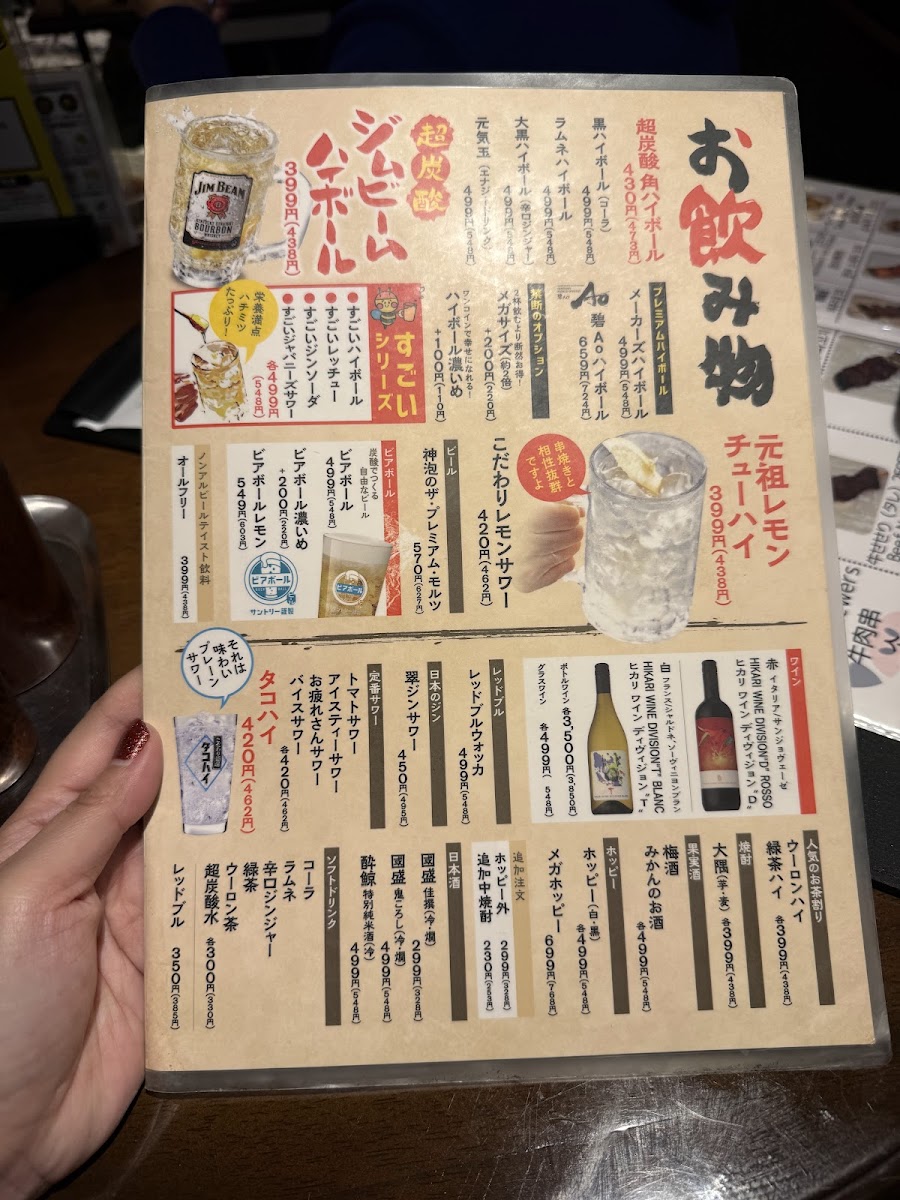 お飲み物
超炭酸 角ハイボール
430円(473円)
黒ハイボール(コーラ)
499円(548円)
ラムネハイボール
499円(548円)
大黒ハイボール(辛口ジンジャー)
499円(548円)
元気玉(エナジードリンク)
499円(548円)
超炭酸
ジムビーム
ハイボール
399円(438円)
JIM BEAM
KENTUCKY STRAIGHT
BOURBON
WHISKEY
プレミアムハイボール
メーカーズハイボール
499円(548円)
Ao
碧Aoハイボール
659円(724円)
禁断のオプション
2杯飲むより断然お得!
メガサイズ(約2倍)
+200円(220円)
ワンコインで幸せになれる!
ハイボール濃いめ
+100円(110円)
すごい
シリーズ
すごいハイボール
すごいレッチュー
すごいジンソーダ
すごいジャパニーズサワー
各499円
(548円)
栄養満点
ハチミツ
たっぷり!
元祖レモン
チューハイ
399円(438円)
串焼きと
相性抜群
ですよ
こだわりレモンサワー
420円(462円)
ビール
神泡のザ・プレミアム・モルツ
570円(627円)
ビアボール
炭酸でつくる
自由なビール
ビアボール
499円(548円)
ビアボール濃いめ
+200円(220円)
ビアボールレモン
549円(603円)
ビアボール
ビアボール
サントリー謹製
ノンアルビールテイスト飲料
オールフリー
399円(438円)
ワイン
赤 イタリア/サンジョヴェーゼ
HIKARI WINE DIVISION"D" ROSSO
ヒカリ ワイン ディヴィジョン "D"
白 フランス/シャルドネ、ソーヴィニヨンブラン
HIKARI WINE DIVISION"T" BLANC
ヒカリ ワイン ディヴィジョン "T"
ボトルワイン 各3,500円(3,850円)
グラスワイン 各499円(548円)
レッドブル
レッドブルウォッカ
499円(548円)
日本のジン
翠ジンサワー
450円(495円)
定番サワー
トマトサワー
アイスティーサワー
お疲れさんサワー
バイスサワー
各420円(462円)
タコハイ
420円(462円)
それは
味わい
プレーン
サワー
タコハイ
人気のお茶割り
ウーロンハイ
緑茶ハイ
各399円(438円)
焼酎
大隅(芋・麦)
各399円(438円)
果実酒
梅酒
みかんのお酒
各499円(548円)
ホッピー
ホッピー(白・黒)
各499円(548円)
メガホッピー
699円(768円)
追加注文
ホッピー外 299円(328円)
追加中焼酎 230円(253円)
日本酒
國盛 佳撰(冷・燗)
299円(328円)
國盛 鬼ころし(冷・燗)
499円(548円)
酔鯨 特別純米酒(冷)
499円(548円)
ソフトドリンク
コーラ
ラムネ
辛口ジンジャー
緑茶
ウーロン茶
超炭酸水
各300円(330円)
レッドブル 350円(385円)
牛肉串